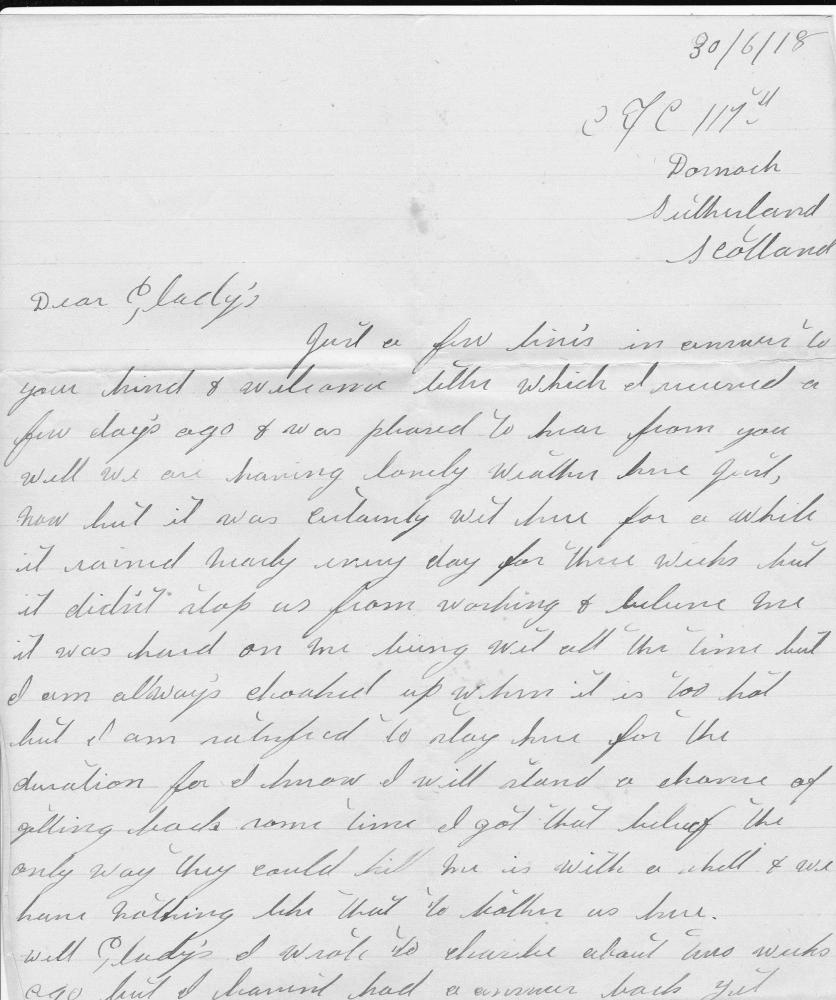 30/6/18
C F C 117th
Dornoch
Sutherland
Scotland
Dear Glady's
Just a few line's in answer to
your kind & welcome letter which I received a
few day's ago & was pleased to hear from you
well we are having lovely weather here just,
now but it was certainly wet here for a while
it rained nearly every day for three weeks but
it didn't stop us from working & believe me
it was hard on me being wet all the time but
I am allway's choaked up when it is too hot
but I am satisfied to stay here for the
duration for I know I will stand a chance of
getting back some time I got that belief the
only way they could kill me is with a shell & we
have nothing like that to bother us here.
well Glady's I wrote to Charlie about two weeks
ago but I havent had a answer back yet